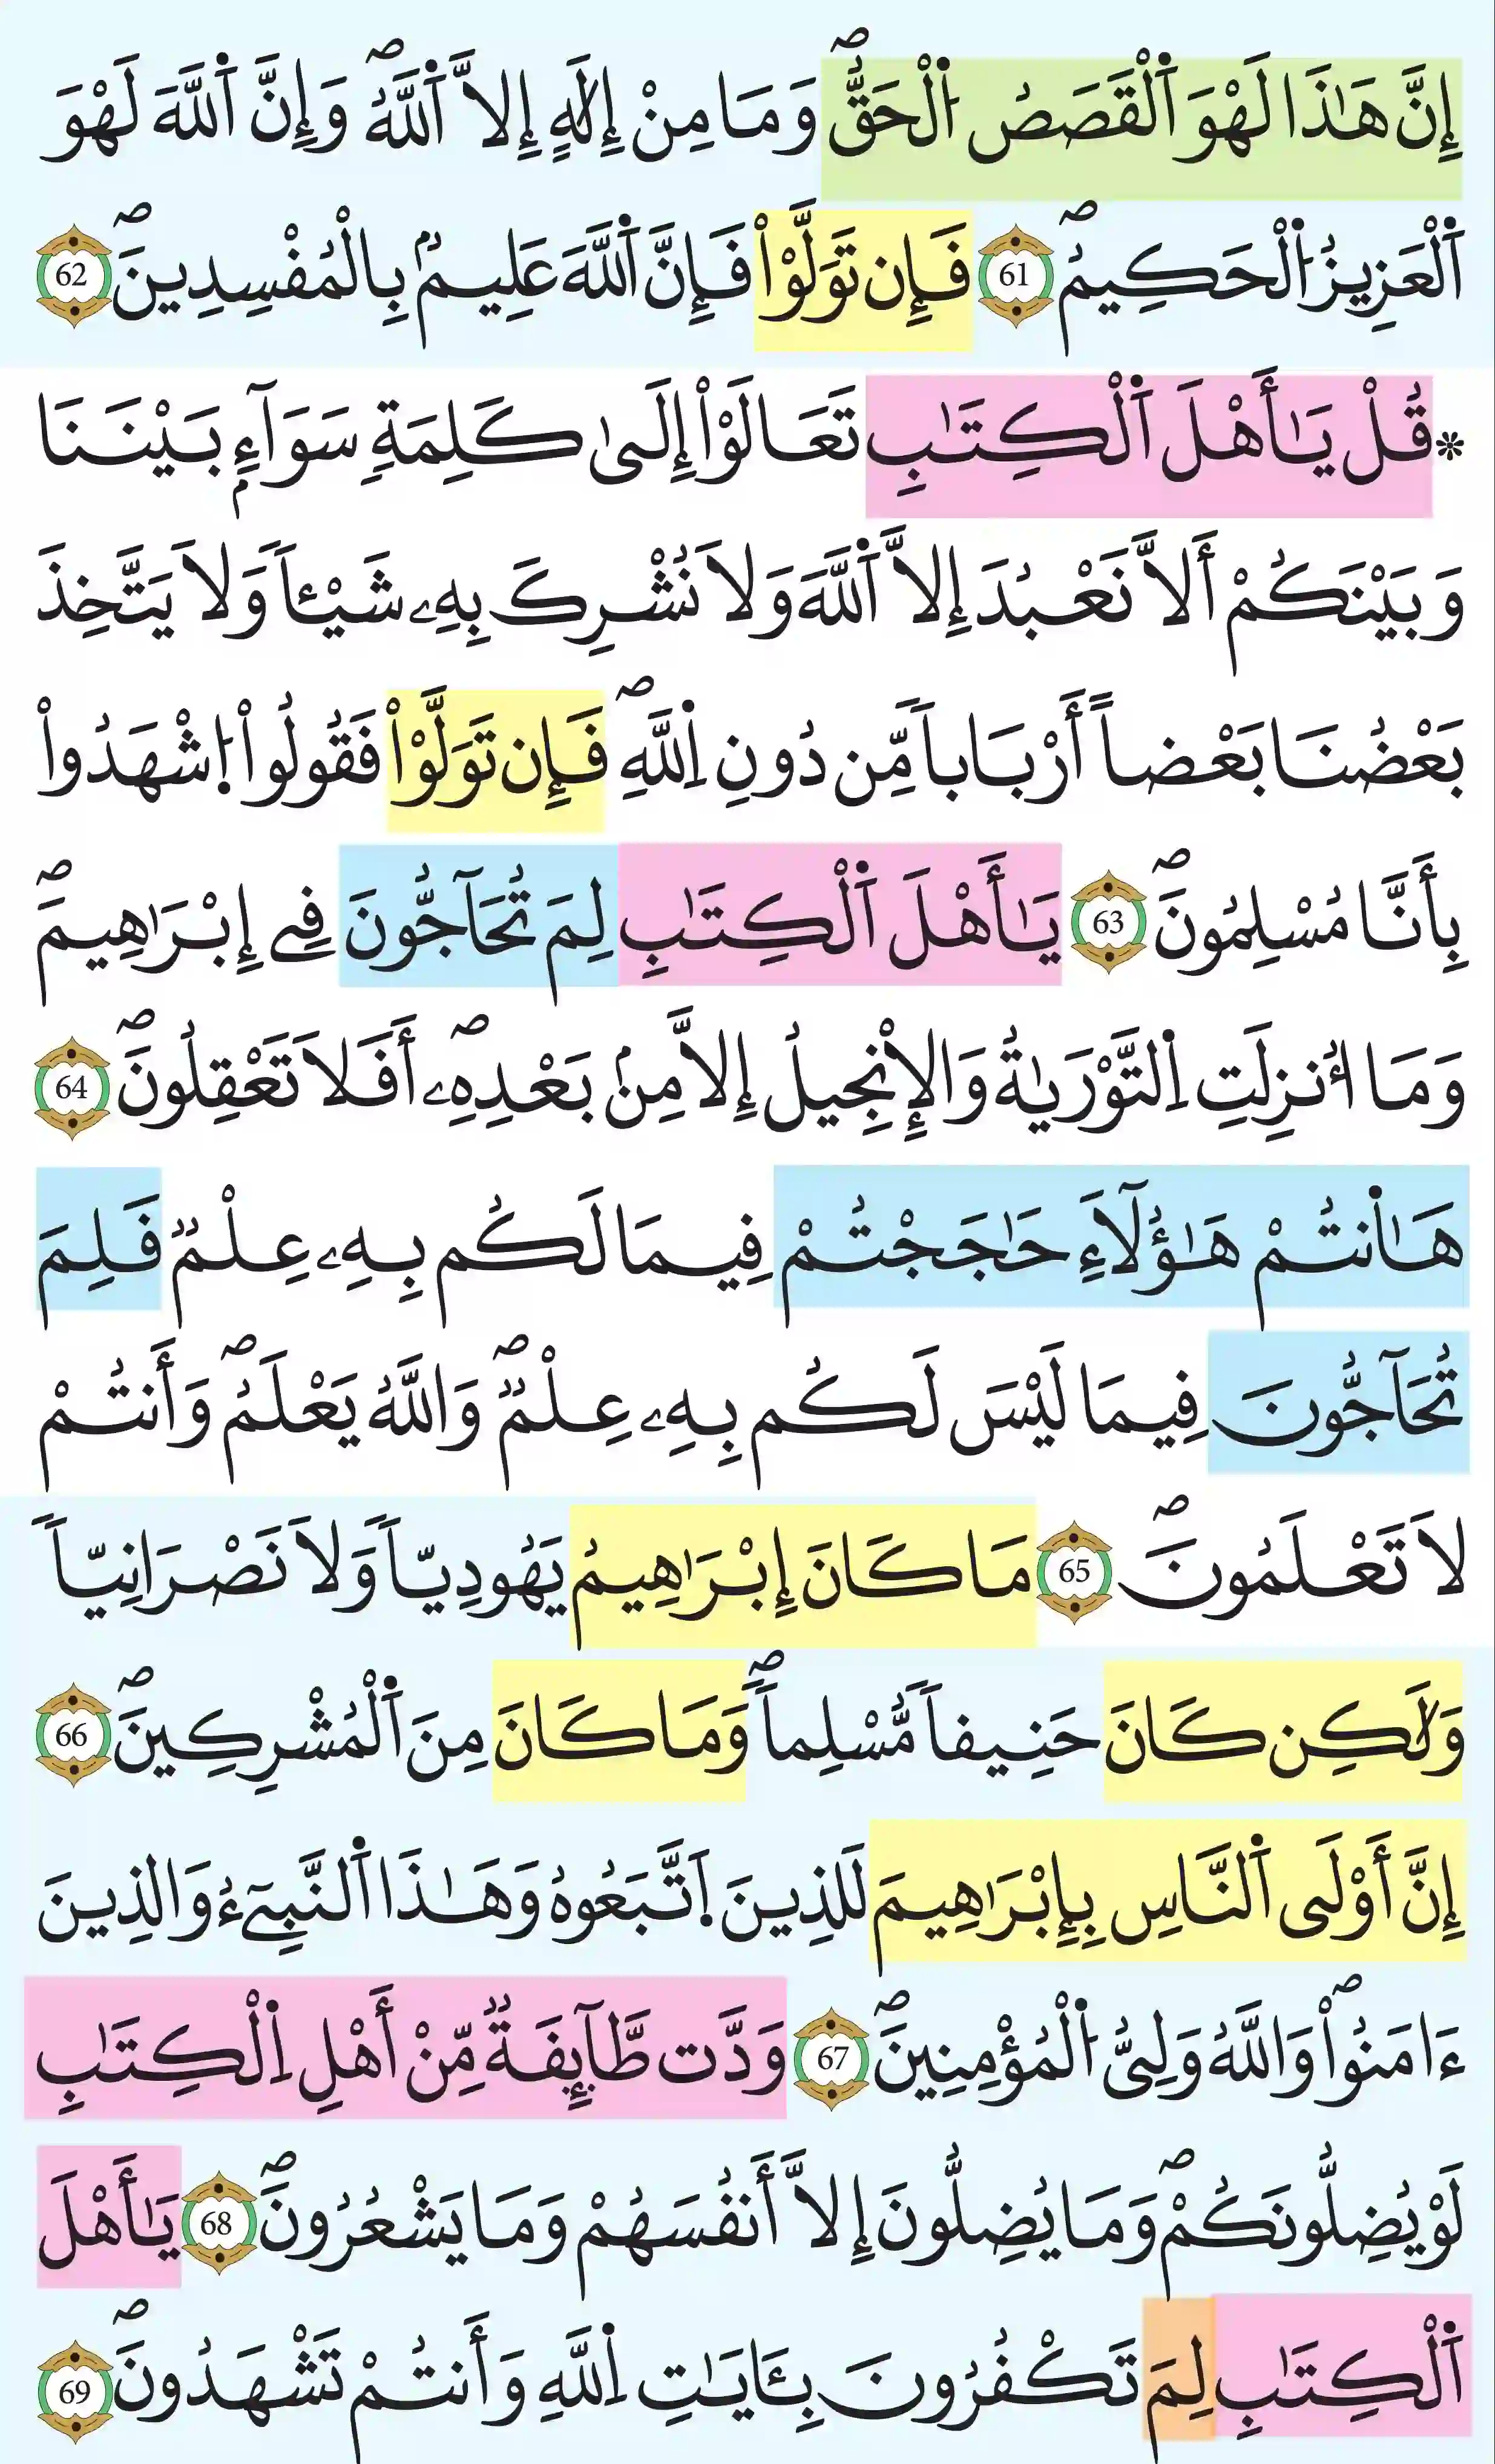 إِنَّ هَٰذَا لَهْوَ ٱلْقَصَصُ ٱلْحَقُّۖ وَمَا مِنْ إِلَٰهٍ إِلَّا ٱللَّهُۖ وَإِنَّ ٱللَّهَ لَهْوَ
ٱلْعَزِيزُ ٱلْحَكِيمُۖ 61 فَإِن تَوَلَّوْاْ فَإِنَّ ٱللَّهَ عَلِيمُۢ بِالْمُفْسِدِينَۖ 62
* قُلْ يَٰأَهْلَ ٱلْكِتَٰبِ تَعَالَوْاْ إِلَىٰ كَلِمَةٖ سَوَآءِۢ بَيْنَنَا
وَبَيْنَكُمْ أَلَّا نَعْبُدَ إِلَّا ٱللَّهَ وَلَا نُشْرِكَ بِهِۦ شَيْـٔاٗ وَلَا يَتَّخِذَ
بَعْضُنَا بَعْضاً أَرْبَاباٗ مِّن دُونِ اِ۬للَّهِۖ فَإِن تَوَلَّوْاْ فَقُولُواْ اُ۪شْهَدُواْ
بِأَنَّا مُسْلِمُونَۖ 63 يَٰأَهْلَ ٱلْكِتَٰبِ لِمَ تُحَآجُّونَ فِےٓ إِبْرَٰهِيمَۖ
وَمَا أُنزِلَتِ اِ۬لتَّوْرَيٰةُ وَالْإِنْجِيلُ إِلَّا مِنۢ بَعْدِهِۦۖ أَفَلَا تَعْقِلُونَۖ 64
هَٰانتُمْ هَٰؤُلَآءِ حَٰجَجْتُمْ فِيمَا لَكُم بِهِۦ عِلْمٞ فَلِمَ
تُحَآجُّونَ فِيمَا لَيْسَ لَكُم بِهِۦ عِلْمٞۖ وَاللَّهُ يَعْلَمُۖ وَأَنتُمْ
لَا تَعْلَمُونَۖ 65 مَا كَانَ إِبْرَٰهِيمُ يَهُودِيّاٗ وَلَا نَصْرَانِيّاٗ
وَلَٰكِن كَانَ حَنِيفاٗ مُّسْلِماٗۖ وَمَا كَانَ مِنَ ٱلْمُشْرِكِينَۖ 66
إِنَّ أَوْلَى ٱلنَّاسِ بِإِبْرَٰهِيمَ لَلذِينَ اَ۪تَّبَعُوهُ وَهَٰذَا ٱلنَّبِيٓءُ وَالذِينَ
ءَامَنُواْۖ وَاللَّهُ وَلِيُّ ٱلْمُؤْمِنِينَۖ 67 وَدَّت طَّآئِفَةٞ مِّنْ أَهْلِ اِ۬لْكِتَٰبِ
لَوْ يُضِلُّونَكُمْۖ وَمَا يُضِلُّونَ إِلَّا أَنفُسَهُمْ وَمَا يَشْعُرُونَۖ 68 يَٰأَهْلَ
ٱلْكِتَٰبِ لِمَ تَكْفُرُونَ بِـَٔايَٰتِ اِ۬للَّهِ وَأَنتُمْ تَشْهَدُونَۖ 69